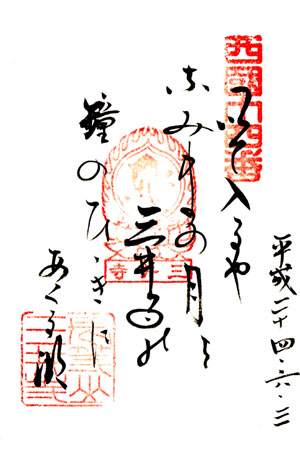 平成二十四・六・三
西國十四番
いで入るや
なみまの月を
三井寺の
鐘のひゞきに
あくる湖